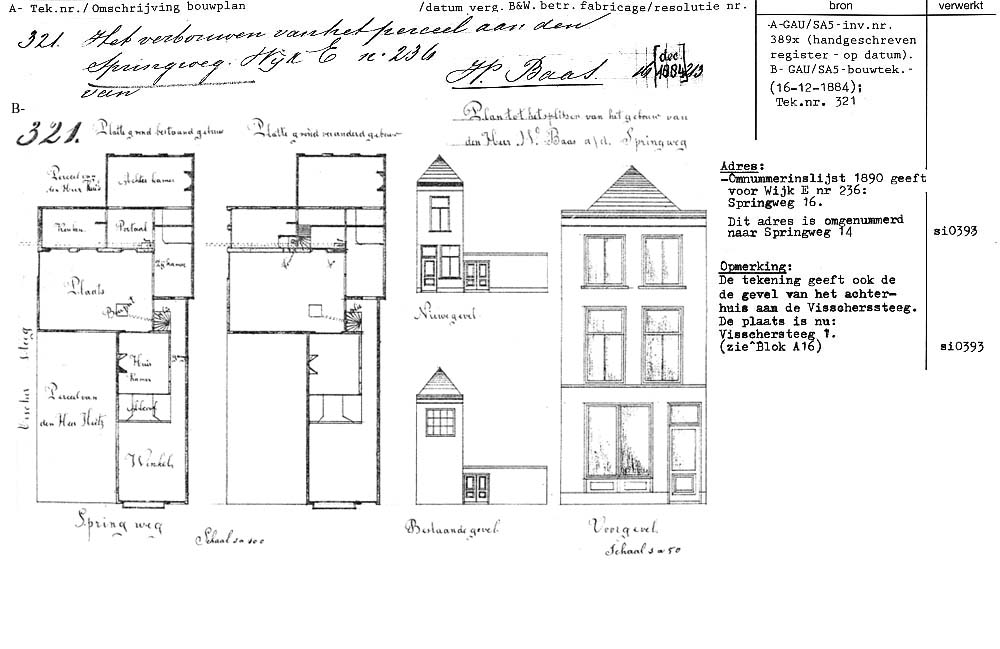 A- Tek.nr./Omschrijving bouwplan /datum verg. B&W. betr. fabricage/resolutie nr. bron verwerkt
321. Het verbouwen van het perceel aan den
Springweg. Wijk E no. 236
van H. Baas 16 [dec] 1884
-A-GAU/SA5-inv.nr.
389x (handgeschreven
register - op datum).
B- GAU/SA5-bouwtek.-
(16-12-1884);
Tek.nr. 321
B-
321. Platte grond bestaand gebouw Platte grond veranderd gebouw
Plan tot het splitsen van het gebouw van
den Heer W. Baas a/d. Springweg
Perceel van
den Heer
Achter kamer
Keuken Portaal
Zijkamer
Plaats
Huis
kamer
Alkoof
Perceel van
den Heer
Winkel
Visscher steeg
Spring weg
Schaal 1 a 100
Nieuwe gevel
Bestaande gevel.
Voorgevel.
Schaal 1 a 50
Adres:
-Omnummerinslijst 1890 geeft
voor Wijk E nr 236:
Springweg 16.
Dit adres is omgenummerd
naar Springweg 14 si0393
Opmerking:
De tekening geeft ook de
de gevel van het achter-
huis aan de Visscherssteeg.
De plaats is nu:
Visschersteeg 1.
(zie^Blok A16) si0393